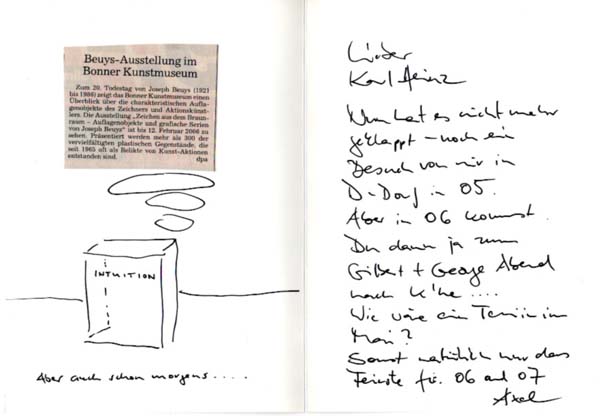 Beuys-Ausstellung im
Bonner Kunstmuseum
Zum 20. Todestag von Joseph Beuys (1921
bis 1986) zeigt das Bonner Kunstmuseum einen
Überblick über die charakteristischen Aufla-
genobjekte des Zeichners und Aktionskünst-
lers. Die Ausstellung „Zeichen aus dem Braun-
raum – Auflagenobjekte und grafische Serien
von Joseph Beuys" ist bis 12. Februar 2006 zu
sehen. Präsentiert werden mehr als 300 der
vervielfältigten plastischen Gegenstände, die
seit 1965 oft als Relikte von Kunst-Aktionen
entstanden sind. dpa
INTUITION
Aber auch schon morgens....
Lieber
Karl Heinz
Nun hat es nicht mehr
geklappt – noch ein
Besuch von mir in
D-Dorf in 05.
Aber in 06 kommst
Du dann ja zum
Gilbert + George Abend
nach K'he ....
Wie wäre ein Termin im
Mai?
Sonst natürlich nur das
Feinste für 06 and 07
Axel